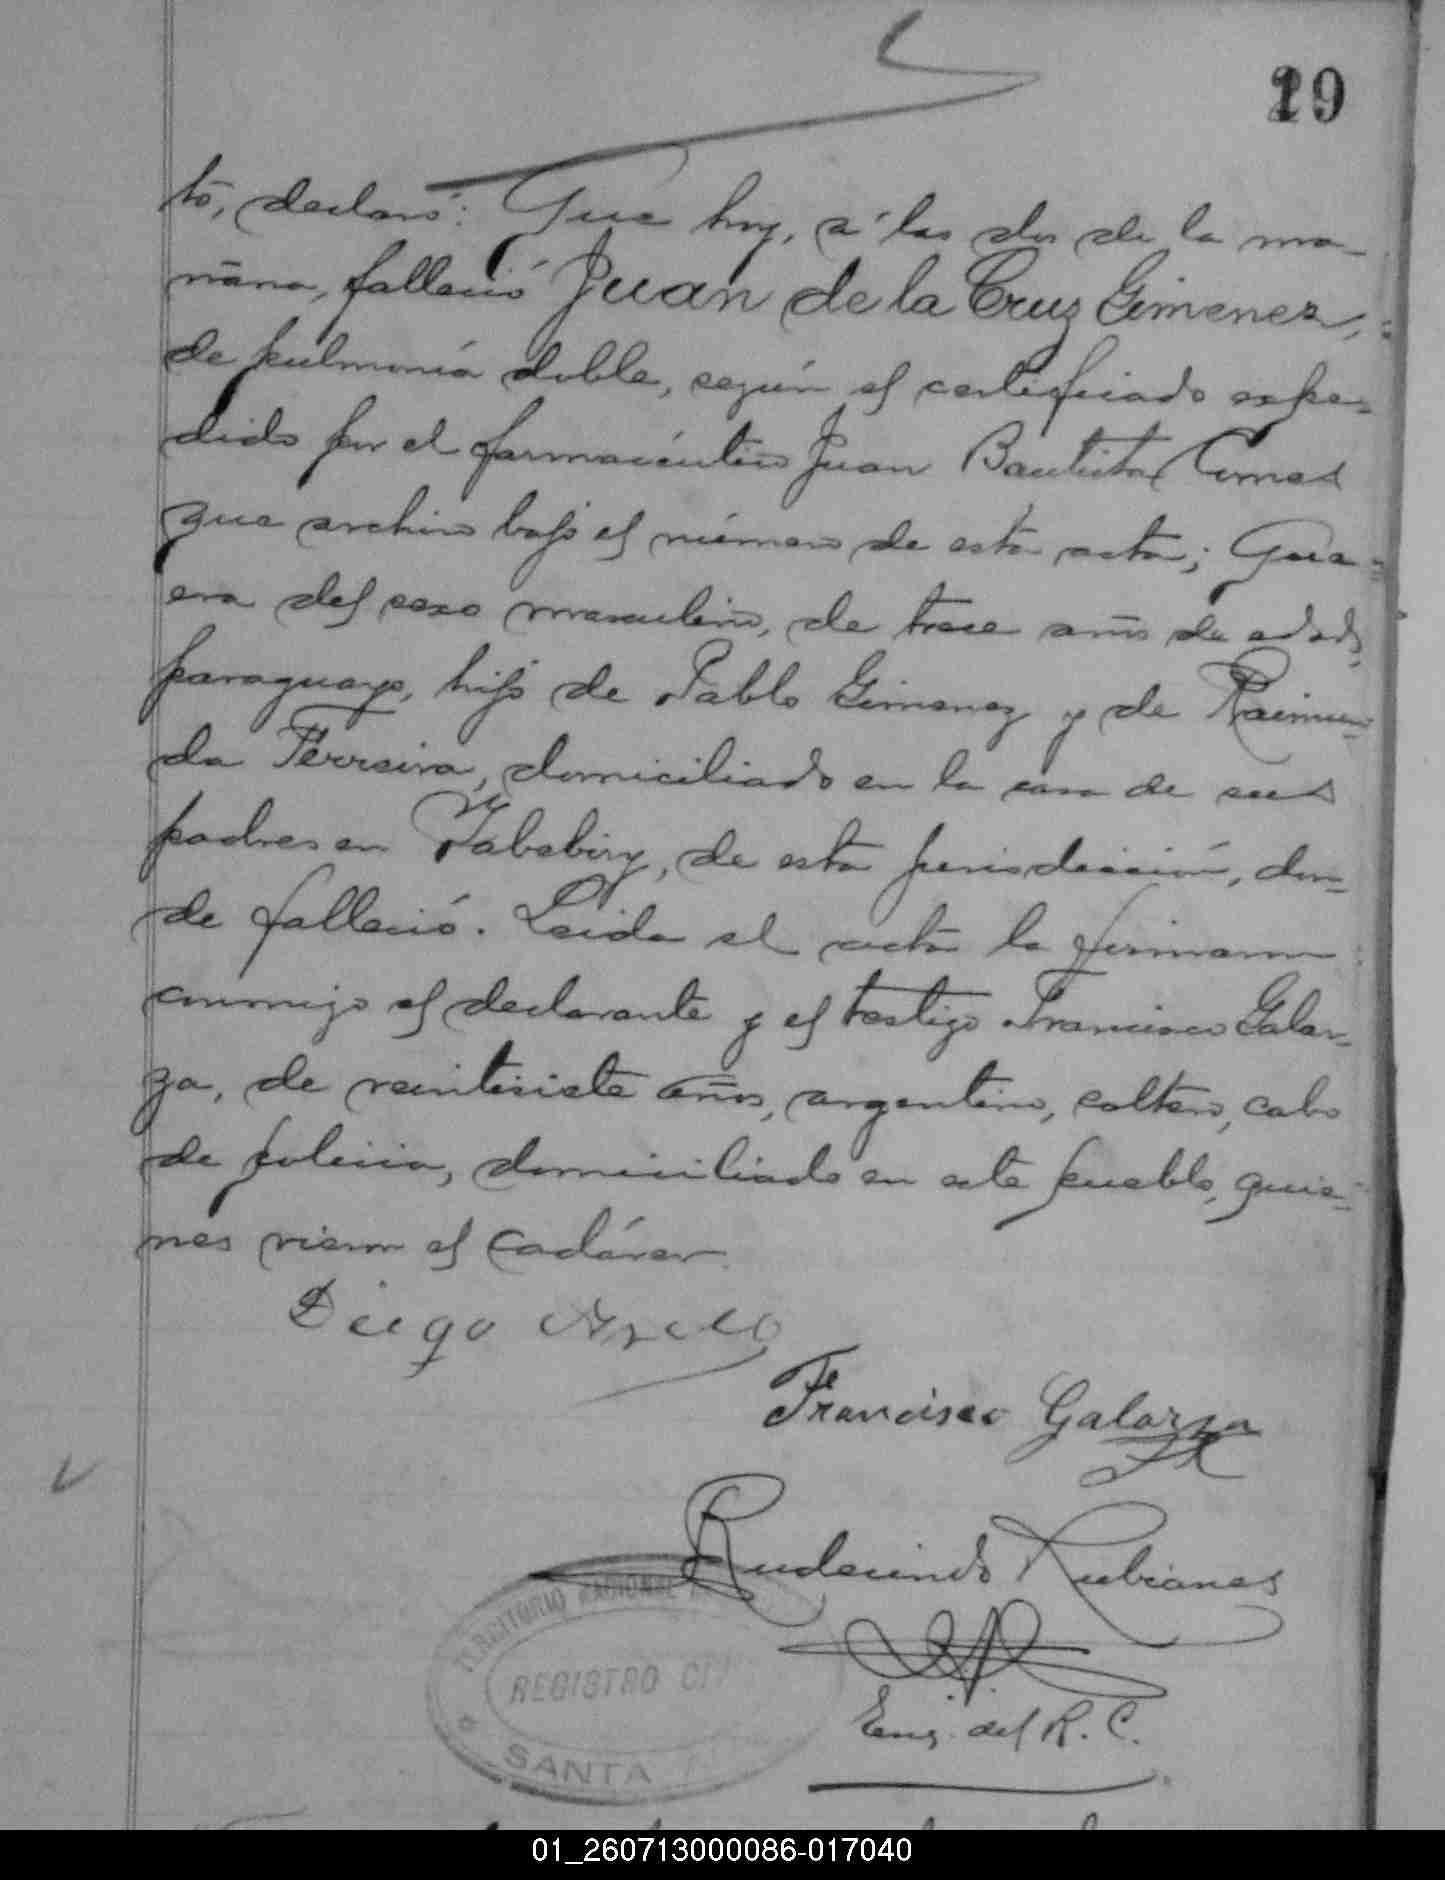 19
tó, declaró: Que hoy, á las dos de la ma-
ñana, falleció Juan de la Cruz Gimenez,
de pulmonía doble, según el certificado expe-
dido por el farmacéutico Juan Bautista
que archivo bajo el número de esta acta; Que
era del sexo masculino, de trece años de edad,
paraguayo, hijo de Pablo Gimenez y de Raimun-
da Ferreira, domiciliado en la casa de sus
padres en Yabebiry, de esta jurisdicción, don-
de falleció. Leida el acta la firmaron
conmigo el declarante y el testigo Francisco Galar-
za, de veintisiete años, argentino, soltero, cabo
de policia, domiciliado en este pueblo, quie-
nes vieron el cadáver.
Diego
Francisco Galarza
Rudecindo Rubianes
Enc. del R. C.
TERRITORIO NACIONAL
REGISTRO CI
SANTA
01_260713000086-017040